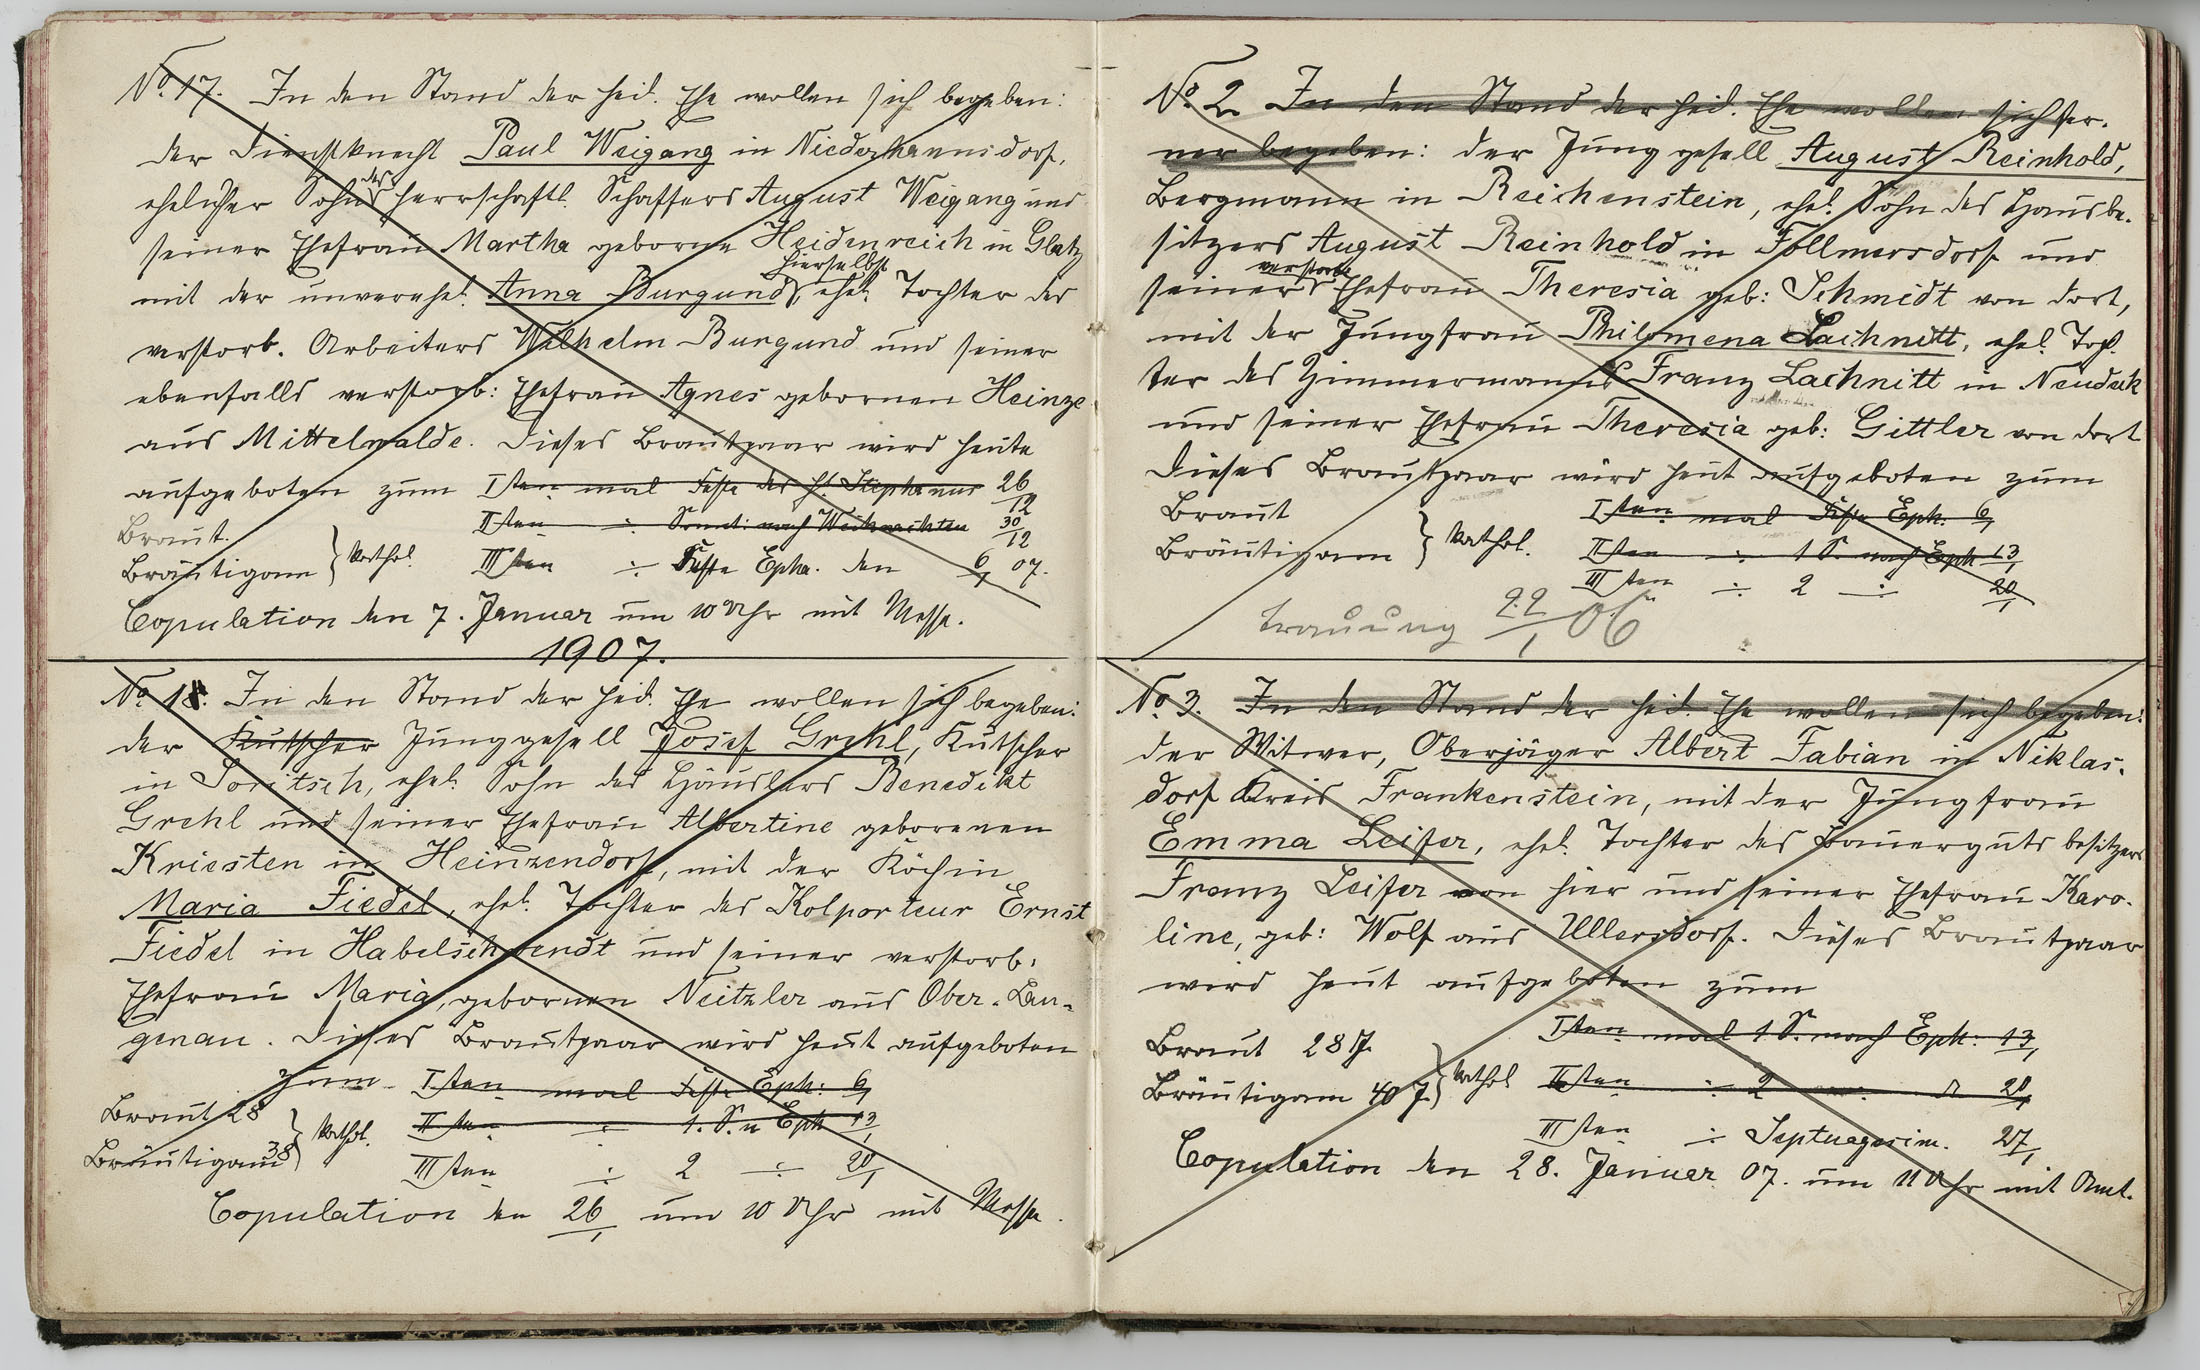 No. 17. In den Stand der heil. Ehe wollen sich begeben:
der Dienstknecht Paul Weigang in Niederhannsdorf,
ehelicher Sohn des herrschaftl. Schaffers August Weigang und
seiner Ehefrau Martha geborne Heidenreich in Glatz
mit der unverehel. Anna Burgund hierselbst, ehel. Tochter des
verstorb. Arbeiters Wilhelm Burgund und seiner
ebenfalls verstorb: Ehefrau Agnes gebornen Heinze
aus Mittelwalde. Dieses Brautpaar wird heute
aufgeboten zum Iten mal Feste des hl. Stephanus 26/12
Braut. IIten ÷ Sonnt: nach Weihnachten 30/12
Bräutigam } kathol. IIIten ÷ Feste Epha. den 6/1 07.
Copulation den 7. Januar um 10 Uhr mit Messe.
1907.
No. 18. In den Stand der heil. Ehe wollen sich begeben:
der Kutscher Junggesell Josef Grehl, Kutscher
in Soritsch, ehel. Sohn des Häuslers Benedikt
Grehl und seiner Ehefrau Albertine geborenen
Kriesten in Heinzendorf, mit der Köchin
Maria Fiedel, ehel. Tochter des Kolporteur Ernst
Fiedel in Habelschwerdt und seiner verstorb.
Ehefrau Maria, gebornen Neitzler aus Ober-Lan-
genau. Dieses Brautpaar wird heut aufgeboten
zum Iten mal Feste Eph: 6/1
Braut 28 IIten ÷ 1. S. n Eph 13/1
Bräutigam 38 } kathol. IIIten ÷ 2 ÷ 20/1
Copulation den 26/1 um 10 Uhr mit Messe.
No. 2. In den Stand der heil. Ehe wollen sich fer-
ner begeben: der Junggesell August Reinhold,
Bergmann in Reichenstein, ehel. Sohn des Hausbe-
sitzers August Reinhold in Follmersdorf und
seiner verstorb. Ehefrau Theresia geb: Schmidt von dort,
mit der Jungfrau Philomena Lachnitt, ehel. Toch-
ter des Zimmermanns Franz Lachnitt in Neudek
und seiner Ehefrau Theresia geb: Gittler von dort
Dieses Brautpaar wird heut aufgeboten zum
Braut Iten mal Feste Eph: 6/1
Bräutigam } kathol. IIten ÷ 1 S. nach Eph 13/1
IIIten ÷ 2 ÷ 20/1
Trauung 22/1 06
No. 3. In den Stand der heil. Ehe wollen sich begeben:
der Witwer, Oberjäger Albert Fabian in Niklas-
dorf Kreis Frankenstein, mit der Jungfrau
Emma Leifer, ehel. Tochter des Bauergutsbesitzers
Franz Leifer von hier und seiner Ehefrau Karo-
line, geb: Wolf aus Ullersdorf. Dieses Brautpaar
wird heut aufgeboten zum
Iten mal 1 S. nach Eph: 13/1
Braut 28 J.
Bräutigam 40 J. } kathol IIten ÷ 2 ÷ 20/1
IIIten ÷ Septuagesim. 27/1
Copulation den 28. Januar 07. um 11 Uhr mit Amt.